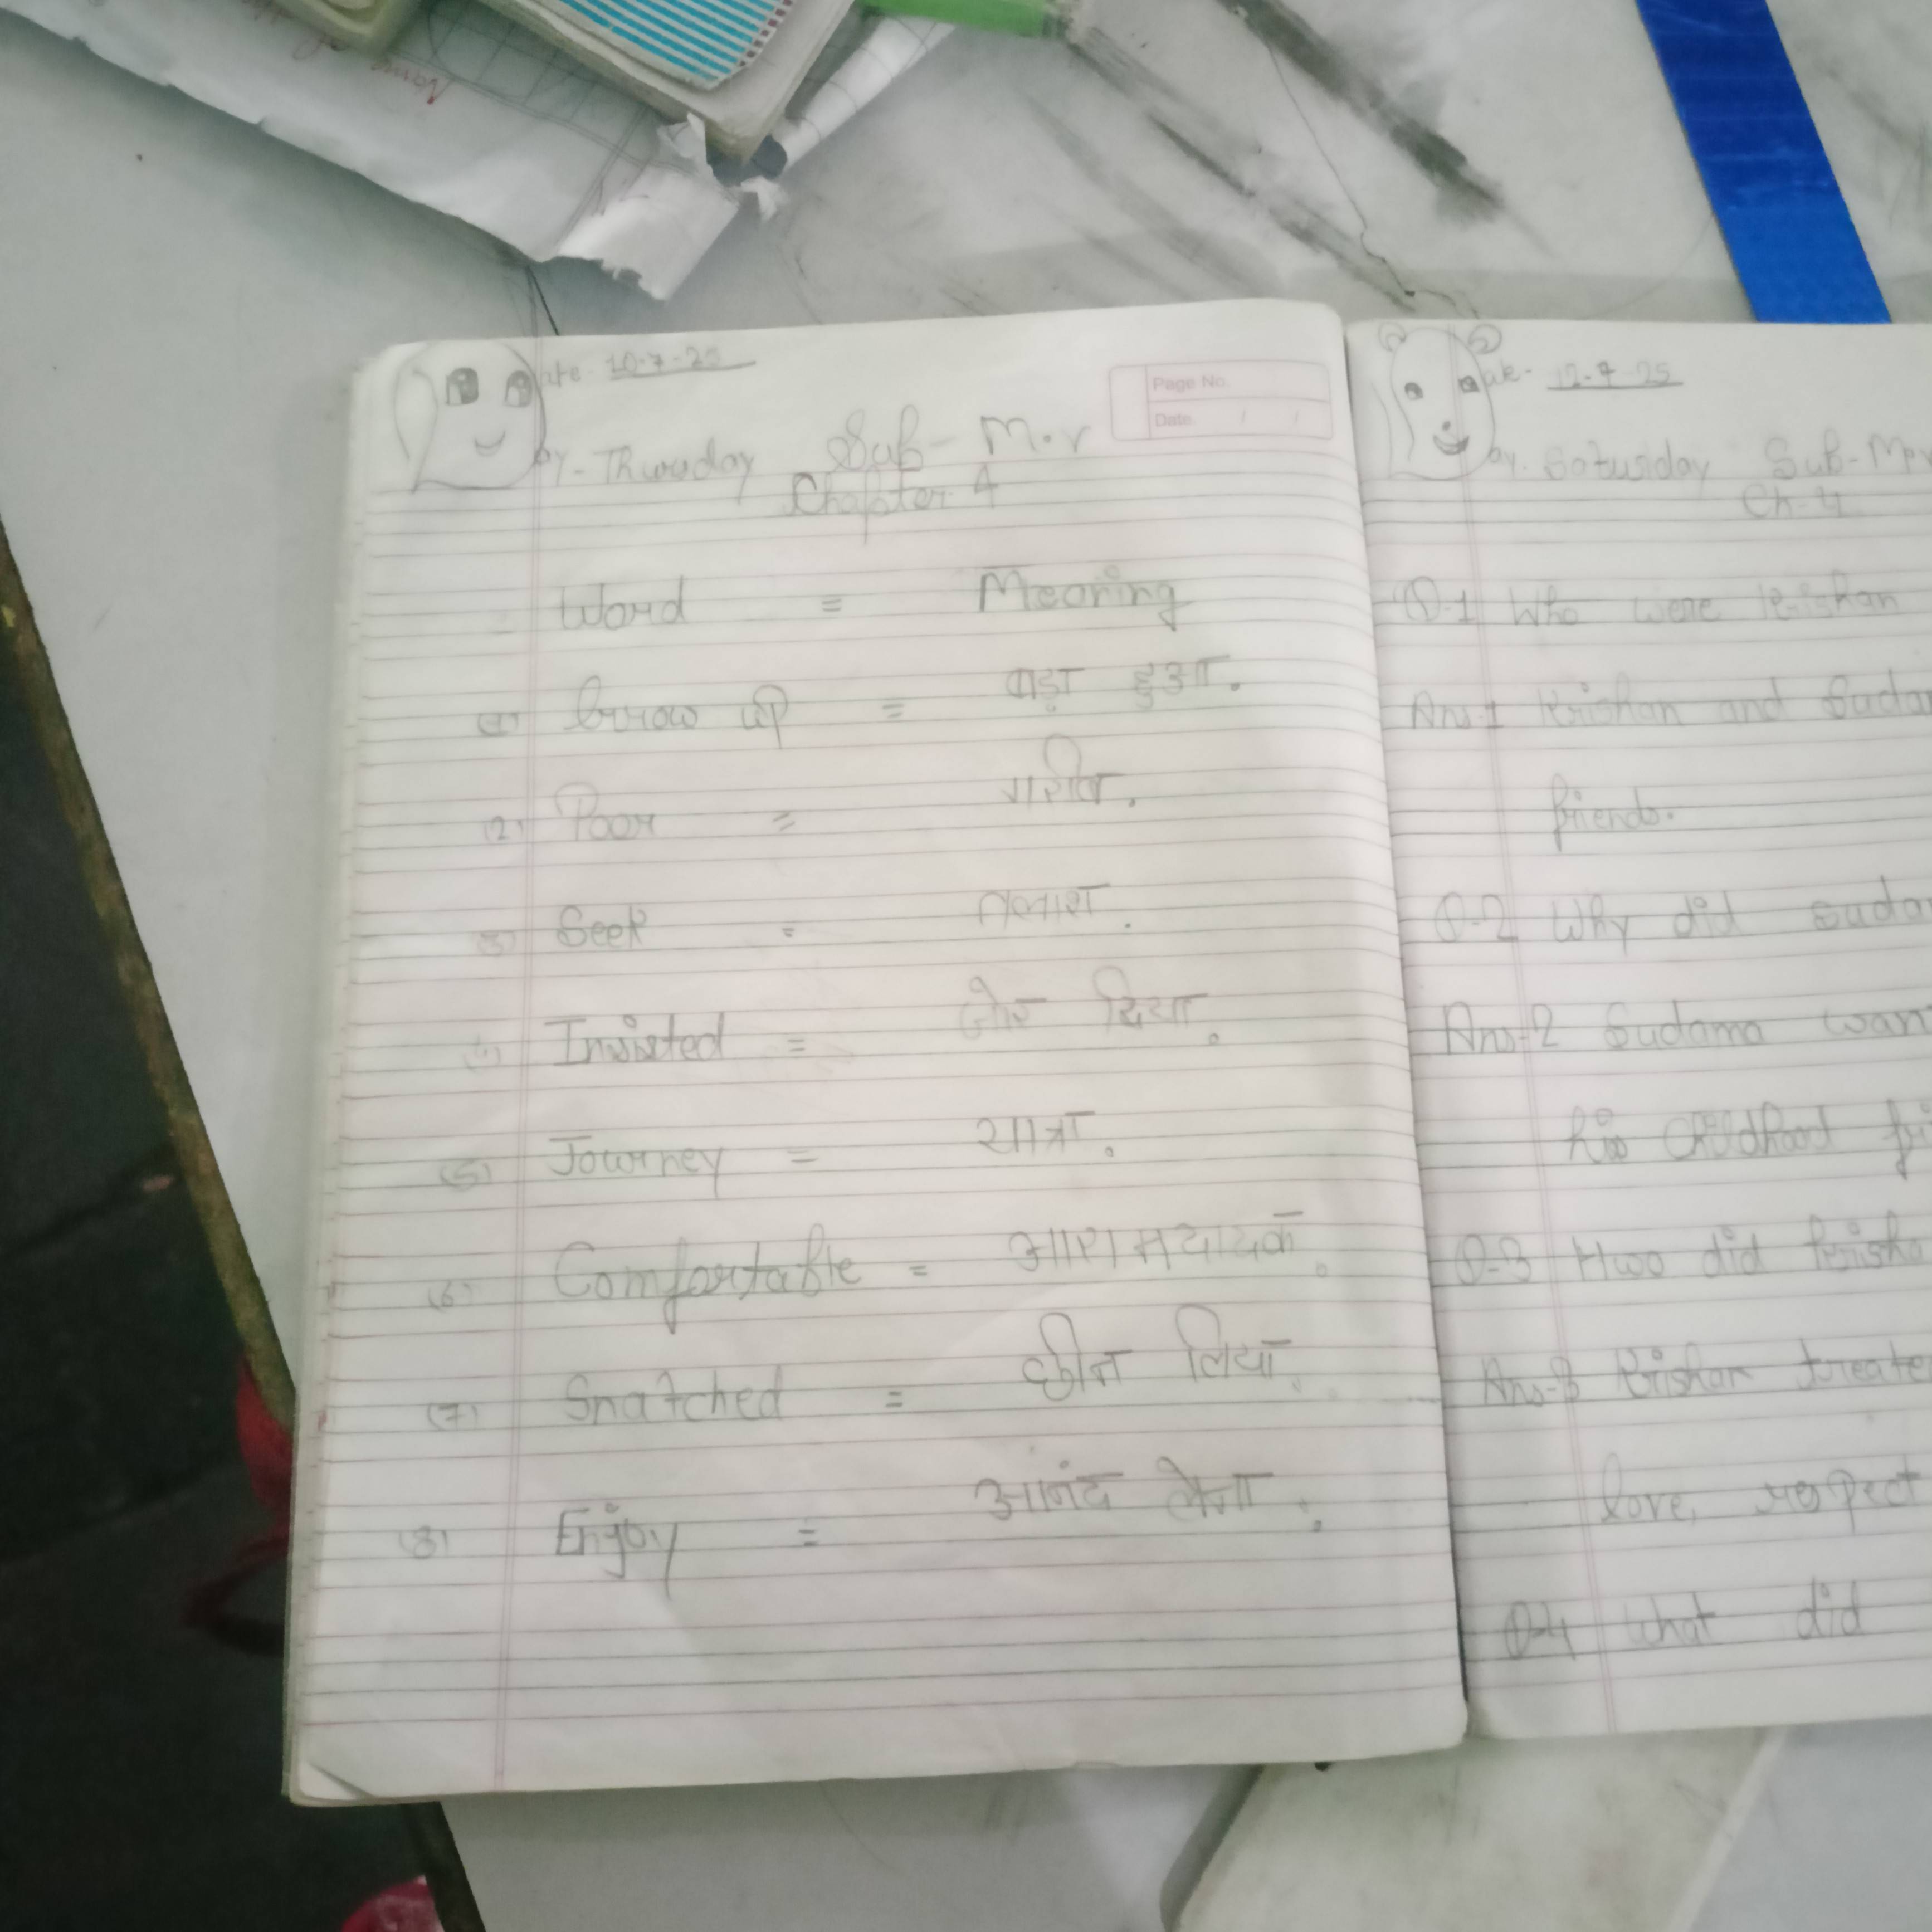 Date- 10-7-25
Page No.
Date. / /
Day- Thursday Sub- M.V
Chapter- 4
Word = Meaning
(1) Grow up = बड़ा हुआ.
(2) Poor = गरीब.
(3) Seek = तलाश.
(4) Insisted = जोर दिया.
(5) Journey = यात्रा.
(6) Comfortable = आरामदायक.
(7) Snatched = छीन लिया.
(8) Enjoy = आनंद लेना.
12-7-25
Day. Saturday Sub- M.V
Ch-4
Q-1 Who were Krishan
Ans-1 Krishan and Sudam
friends.
Q-2 Why did Sudam
Ans-2 Sudama wan
his childhood fri
Q-3 Hwo did Krisha
Ans-3 Krishan treate
love, respect
Q-4 What did